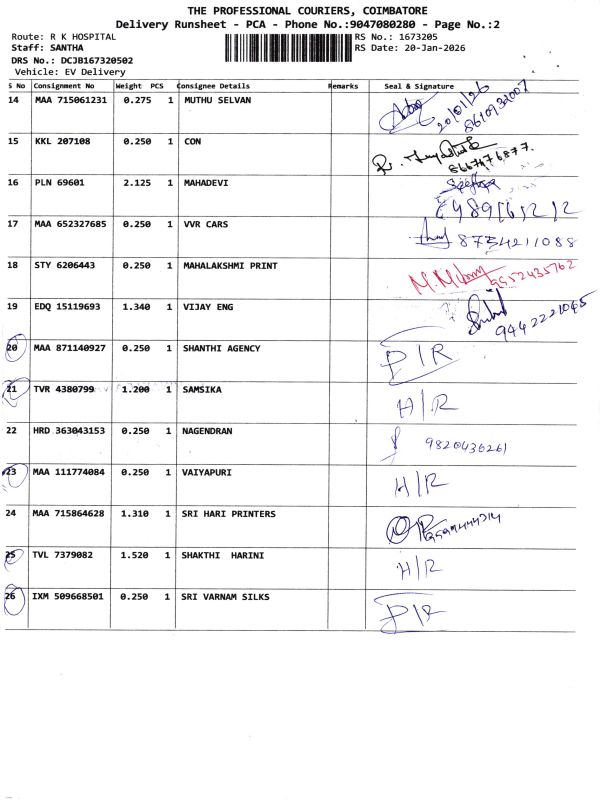 THE PROFESSIONAL COURIERS, COIMBATORE
Delivery Runsheet - PCA - Phone No.:9047080280 - Page No.:2
Route: R K HOSPITAL RS No.: 1673205
Staff: SANTHA RS Date: 20-Jan-2026
DRS No.: DCJB167320502
Vehicle: EV Delivery
S No Consignment No Weight PCS Consignee Details Remarks Seal & Signature
14 MAA 715061231 0.275 1 MUTHU SELVAN 20/01/26
15 KKL 207108 0.250 1 CON
16 PLN 69601 2.125 1 MAHADEVI
17 MAA 652327685 0.250 1 VVR CARS 8734211088
18 STY 6206443 0.250 1 MAHALAKSHMI PRINT 9952435762
19 EDQ 15119693 1.340 1 VIJAY ENG 9442221045
20 MAA 871140927 0.250 1 SHANTHI AGENCY D/R
21 TVR 4380799 1.200 1 SAMSIKA H/R
22 HRD 363043153 0.250 1 NAGENDRAN 9820436261
23 MAA 111774084 0.250 1 VAIYAPURI H/R
24 MAA 715864628 1.310 1 SRI HARI PRINTERS
25 TVL 7379082 1.520 1 SHAKTHI HARINI H/R
26 IXM 509668501 0.250 1 SRI VARNAM SILKS D/R